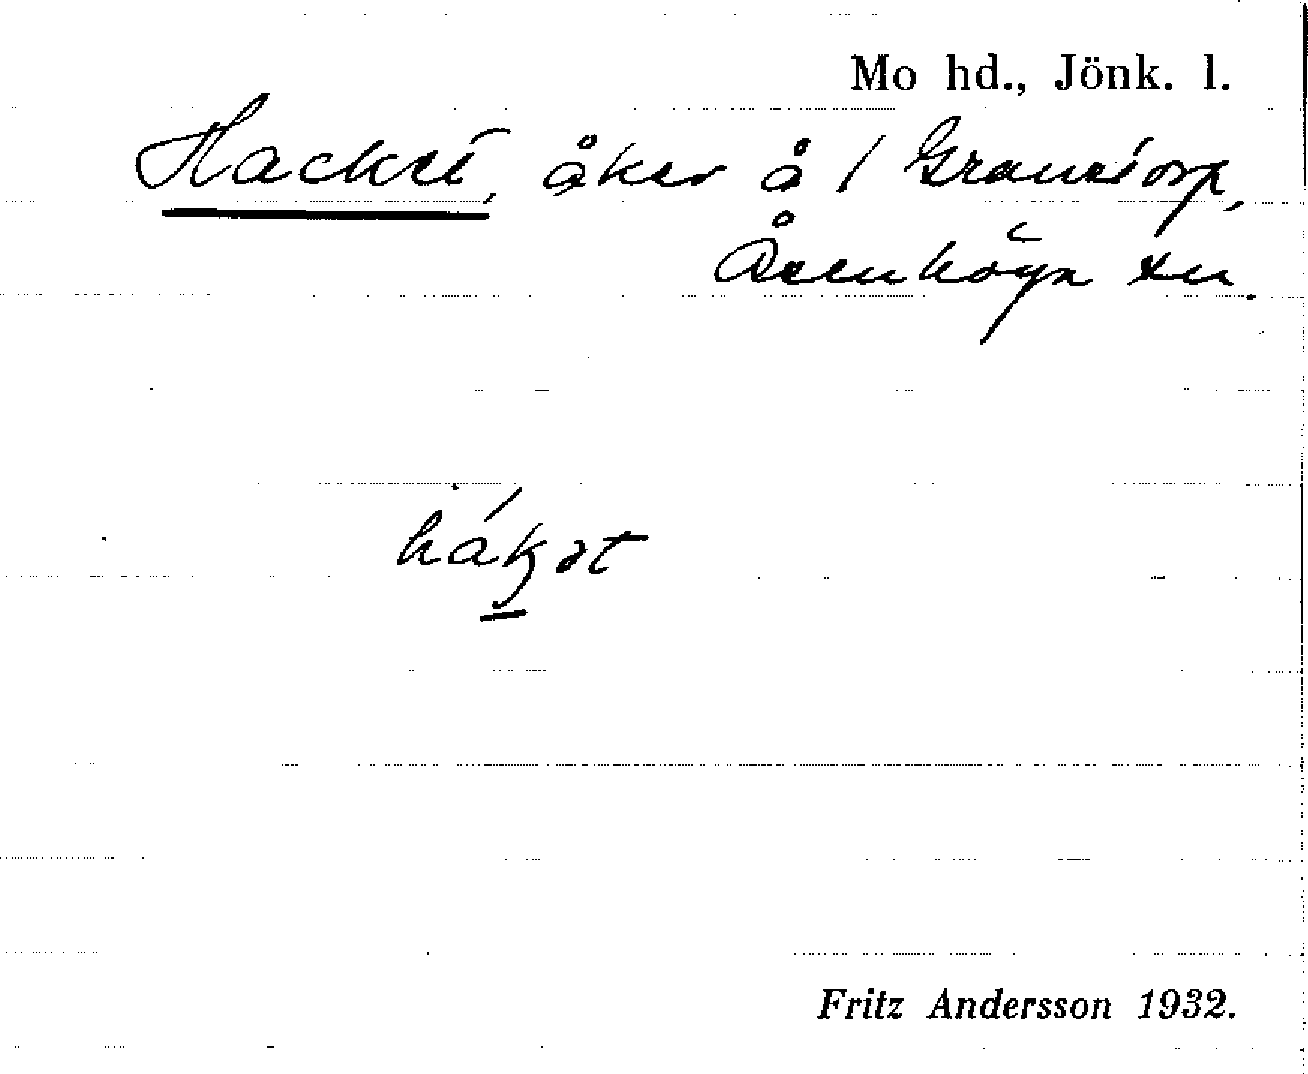 Mo hd., Jönk. l.
Hacket, åker å / Granstorp,
Åsenhöga sn.
hák̠ət
Fritz Andersson 1932.